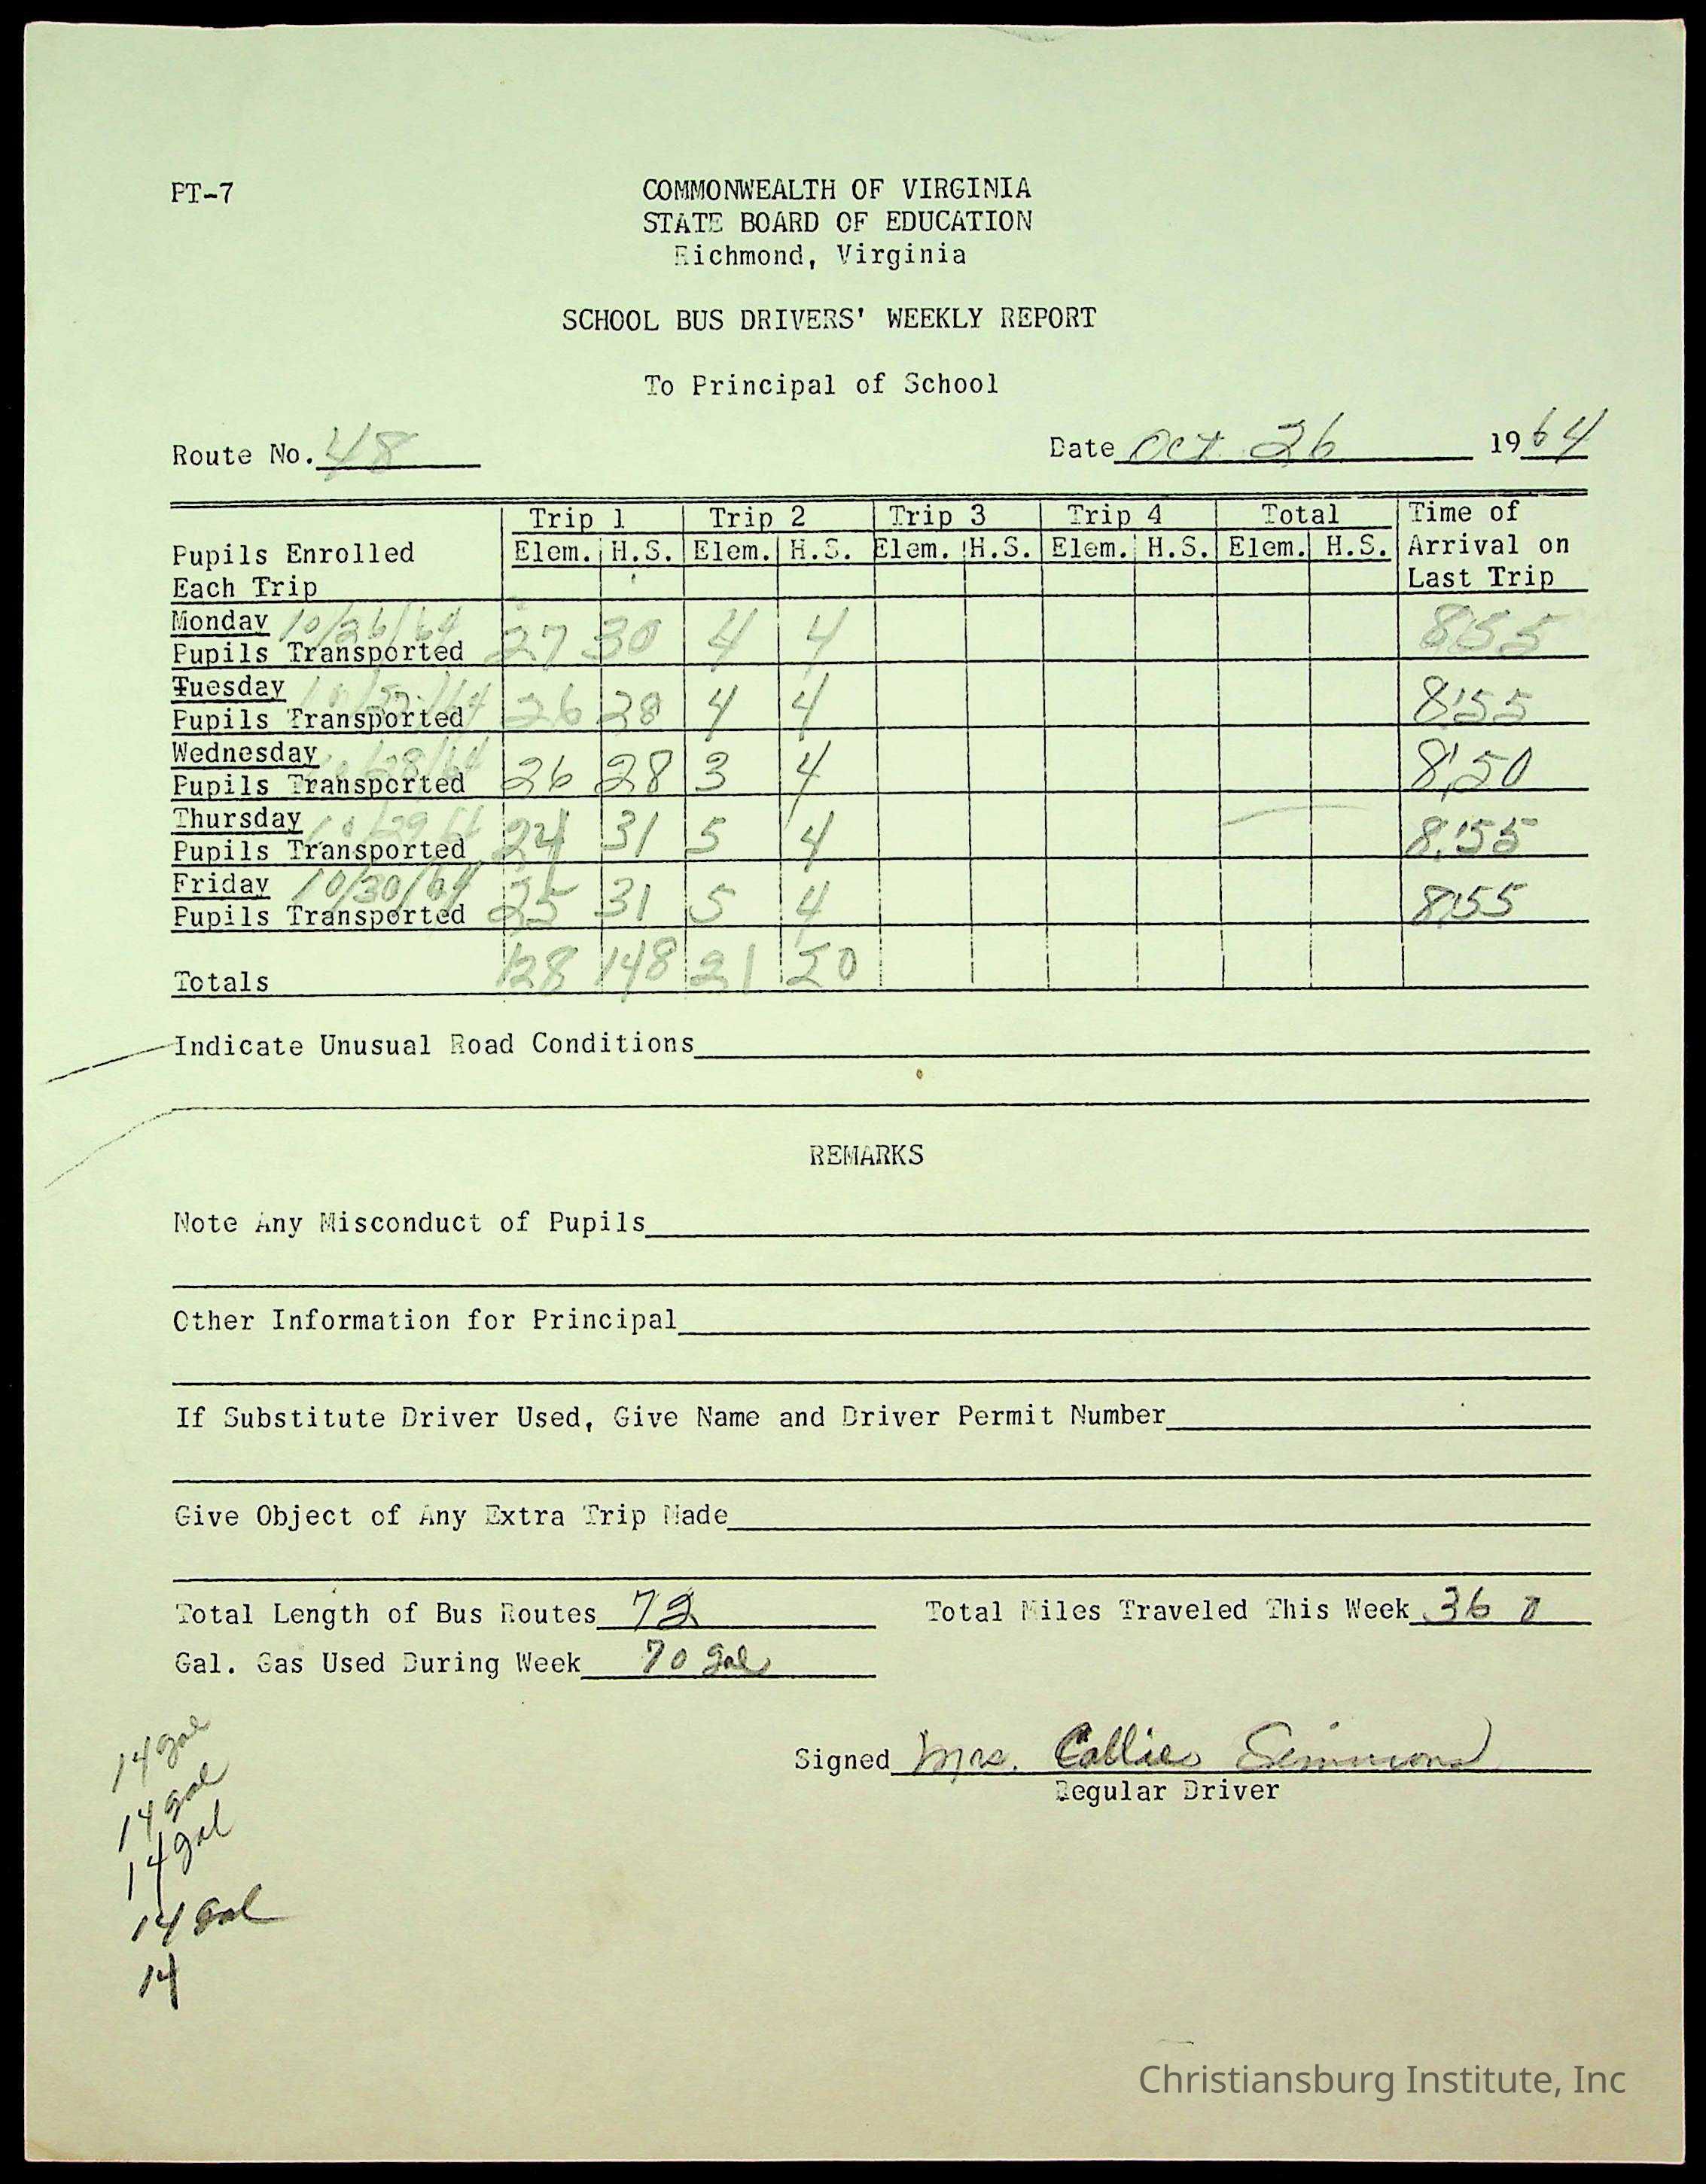 PT-7
COMMONWEALTH OF VIRGINIA
STATE BOARD OF EDUCATION
Richmond, Virginia
SCHOOL BUS DRIVERS' WEEKLY REPORT
To Principal of School
Route No. 48 Date Oct 26 1964
Trip 1 Trip 2 Trip 3 Trip 4 Total Time of
Pupils Enrolled Elem. H.S. Elem. H.S. Elem. H.S. Elem. H.S. Elem. H.S. Arrival on
Each Trip Last Trip
Monday 10/26/64
Pupils Transported 27 30 4 4 8:55
Tuesday 10/27/64
Pupils Transported 26 28 4 4 8:55
Wednesday 10/28/64
Pupils Transported 26 28 3 4 8:50
Thursday 10/29/64
Pupils Transported 24 31 5 4 8:55
Friday 10/30/64
Pupils Transported 25 31 5 4 8:55
Totals 128 148 21 20
Indicate Unusual Road Conditions
REMARKS
Note Any Misconduct of Pupils
Other Information for Principal
If Substitute Driver Used, Give Name and Driver Permit Number
Give Object of Any Extra Trip Made
Total Length of Bus Routes 72 Total Miles Traveled This Week 360
Gal. Gas Used During Week 70 gal
Signed Mrs. Callie Simmons
Regular Driver
14 gal
14 gal
14 gal
14 gal
14
Christiansburg Institute, Inc